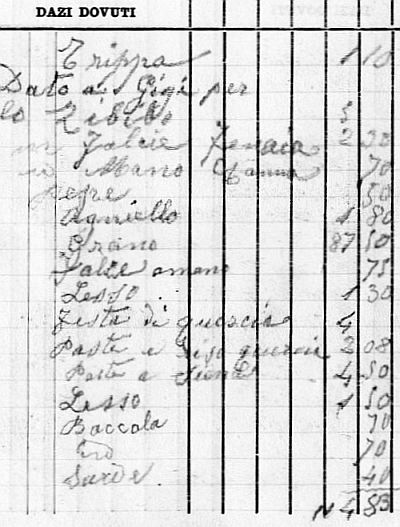 DAZI DOVUTI
Trippa 1 10
Dato a Gigi per
lo Zibibbo 5
Falcie Fenaia 2 30
Mano 70
Pepe 50
Agniello 1 80
Grano 87 50
Falce amano 75
Lesso 1 30
Testa di 4
Pasta e 2 08
Pasta a 4 50
Lesso 1 50
Baccala 70
70
Sarde 40
N 4 83